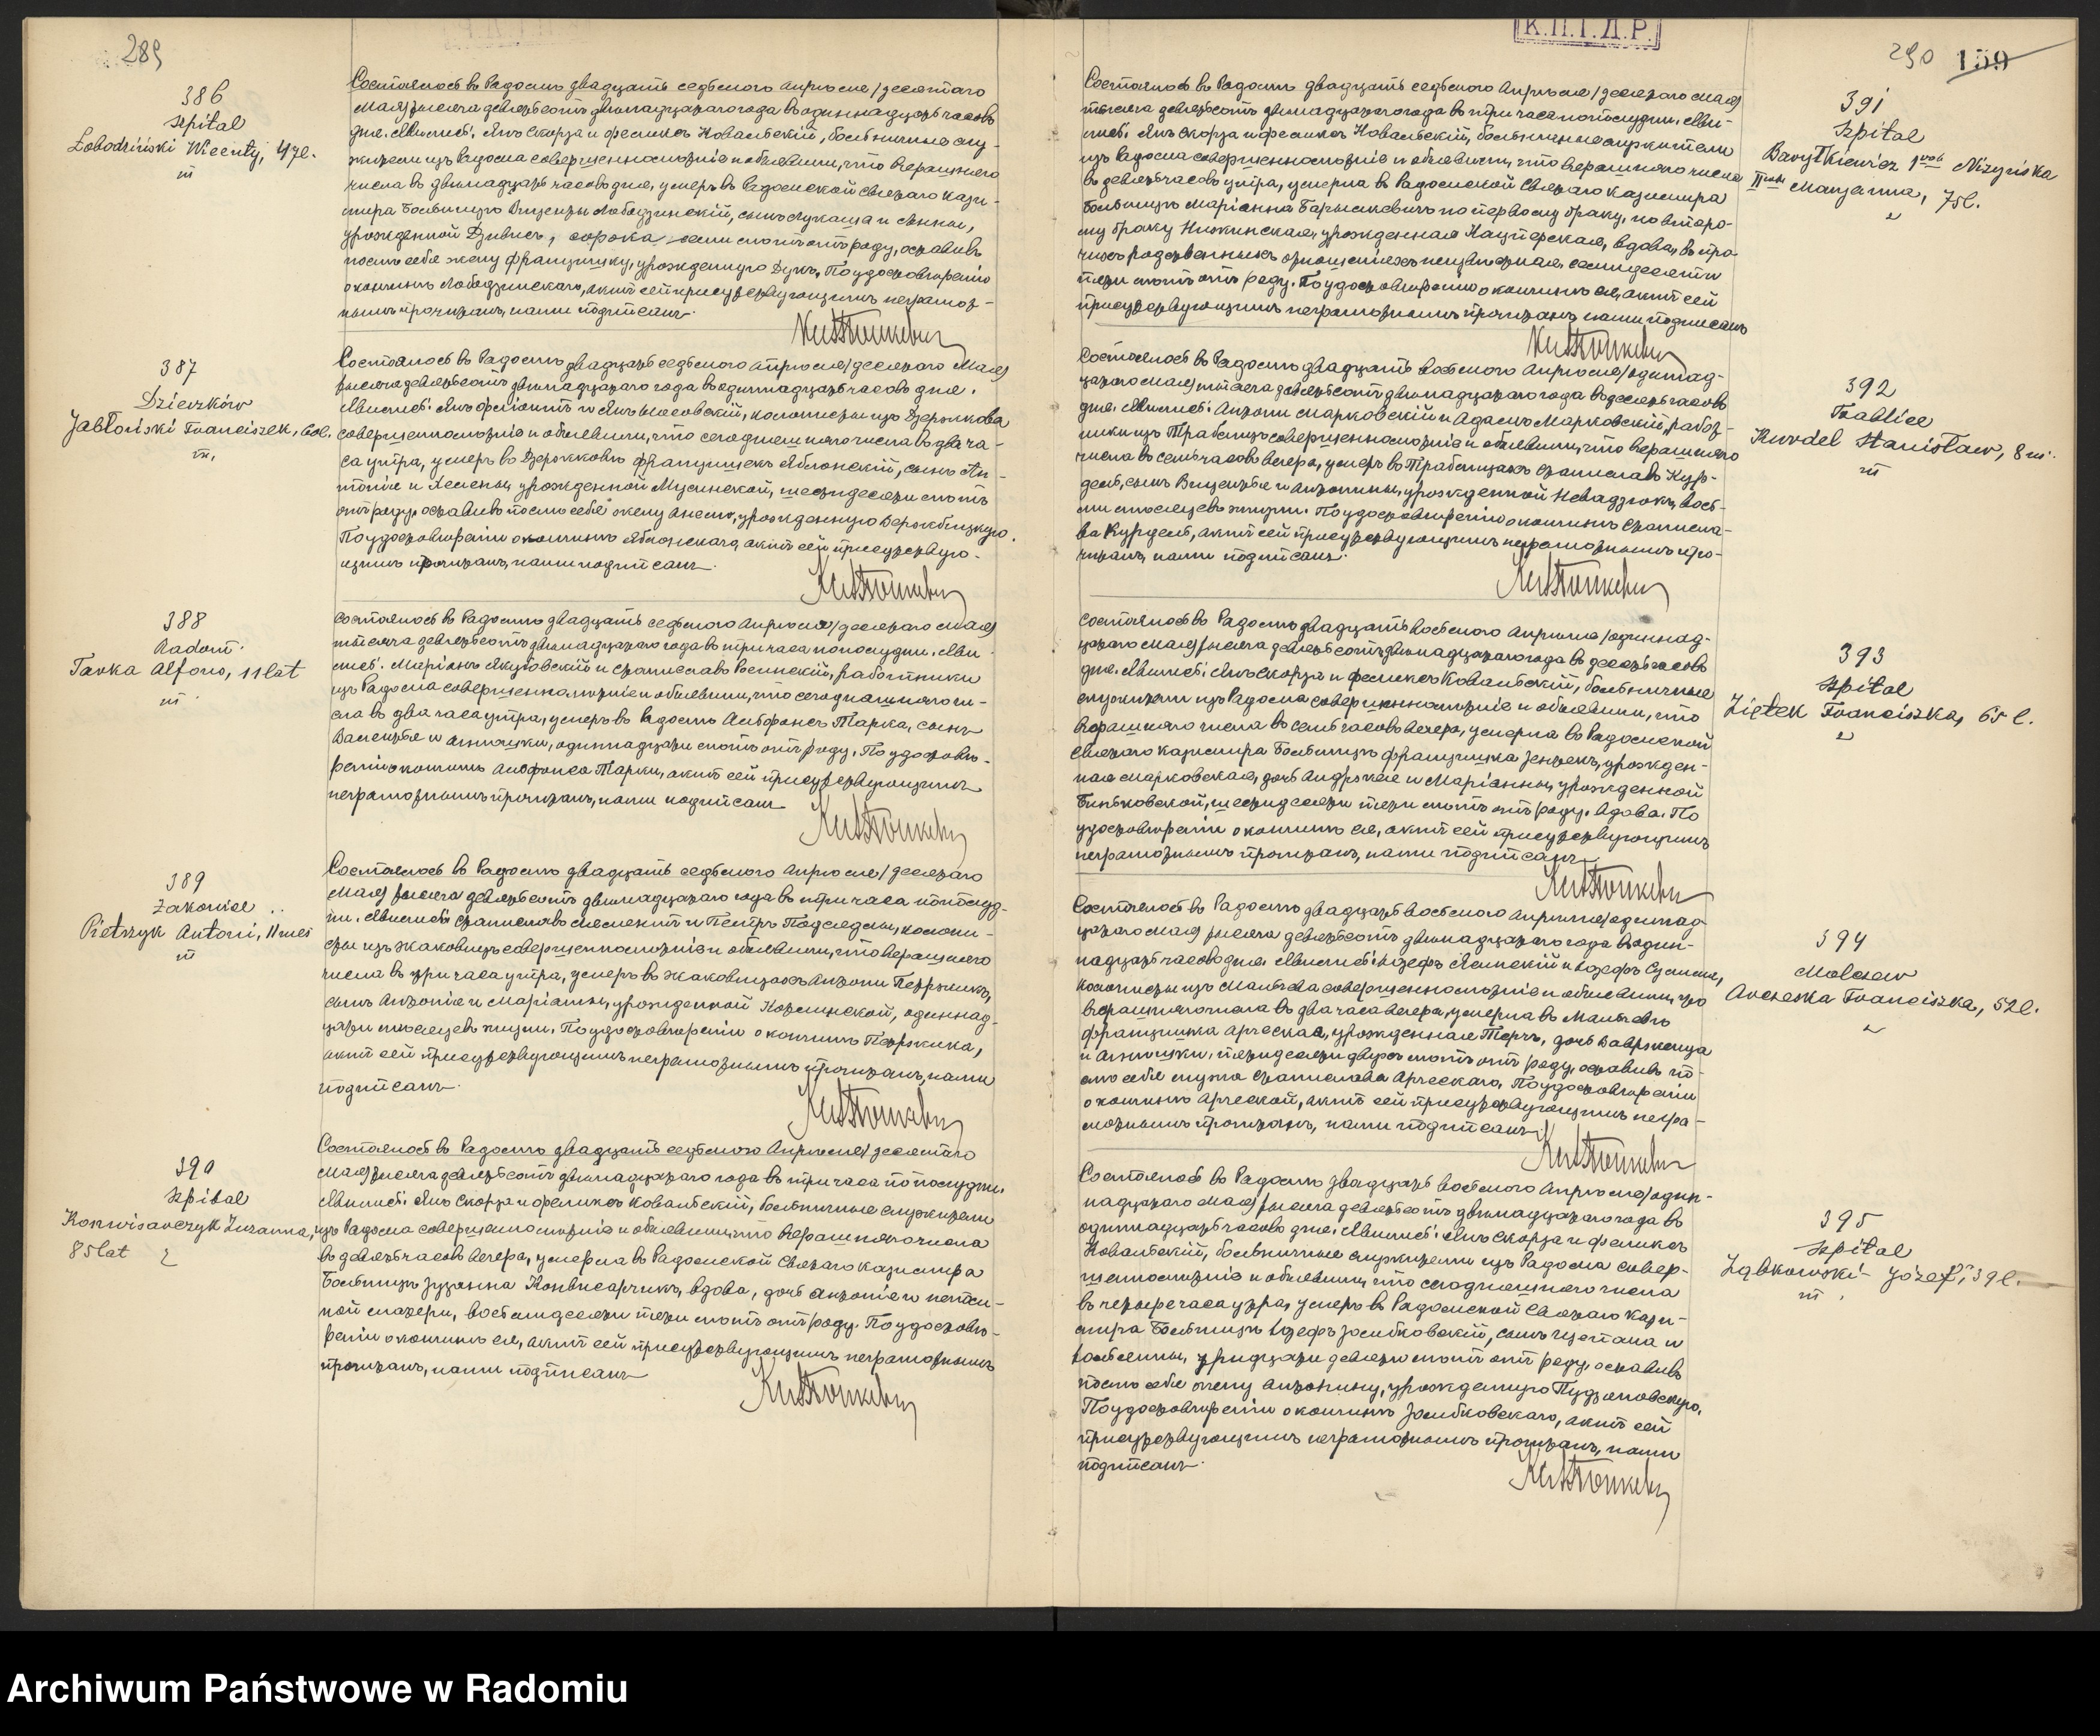 289
386
szpital
Łobodziński Wicenty, 47l.
m
Состоялось въ Радомѣ двадцать седьмого Апрѣля /десятаго
Мая/ тысяча девятьсотъ двѣнадцатаго года въ одиннадцать часовъ
дня. Явились: Янъ Скорža и Феликсъ Ковальскій, больничные слу-
жители изъ Радома совершеннолѣтніе и объявили, что вчерашняго
числа въ двѣнадцать часовъ дня, умеръ въ Радомской Святаго Кази-
мира Больницѣ Виценты Лободзинскій, сынъ Лукаша и Анны,
урожденной Дзивисъ, сорока семи лѣтъ отъ роду, оставивъ
послѣ себя жену Францишку, урожденную Дукъ. По удостовѣренію
о кончинѣ Лободзинскаго, актъ сей присутствующимъ неграмот-
нымъ прочитанъ, нами подписанъ.
387
Dzierzków
Jabłoński Franciszek, 60l.
m.
Состоялось въ Радомѣ двадцать седьмого Апрѣля /десятаго Мая/
тысяча девятьсотъ двѣнадцатаго года въ одиннадцать часовъ дня.
Явились: Янъ и Янъ колонисты изъ Дзержкова
совершеннолѣтніе и объявили, что сегодняшняго числа въ два ча-
са утра, умеръ въ Дзержковѣ Францишекъ Яблонскій, сынъ Ан-
тонія и Хелены, урожденной Мусинской, шестидесяти лѣтъ
отъ роду, оставивъ послѣ себя жену урожденную
По удостовѣренію о кончинѣ Яблонскаго, актъ сей присутствую-
щимъ прочитанъ, нами подписанъ.
388
Radom.
Tarka Alfons, 11 lat
m.
Состоялось въ Радомѣ двадцать седьмого Апрѣля /десятаго Мая/
тысяча девятьсотъ двѣнадцатаго года въ три часа пополудни. Яви-
лись: Маріянъ Якубовскій и Станиславъ работники
изъ Радома совершеннолѣтніе и объявили, что сегодняшняго чи-
сла въ два часа утра, умеръ въ Радомѣ Альфонсъ Тарка, сынъ
Валентія и Агнешки, одиннадцати лѣтъ отъ роду. По удостовѣ-
ренію о кончинѣ Альфонса Тарки, актъ сей присутствующимъ
неграмотнымъ прочитанъ, нами подписанъ
389
Żakowice
Pietrzyk Antoni, 11 mies
m
Состоялось въ Радомѣ двадцать седьмого Апрѣля /десятаго
Мая/ тысяча девятьсотъ двѣнадцатаго года въ три часа пополуд-
ни. Явились Станиславъ и Петръ колони-
сты изъ Жаковицъ совершеннолѣтніе и объявили, что вчерашняго
числа въ три часа утра, умеръ въ Жаковицахъ Антони Петржикъ,
сынъ Антонія и Маріанны, урожденной одиннад-
цати мѣсяцевъ жизни. По удостовѣренію о кончинѣ Петржика,
актъ сей присутствующимъ неграмотнымъ прочитанъ, нами
подписанъ.
390
szpital
Konwisarczyk Zuzanna,
85 lat
Состоялось въ Радомѣ двадцать седьмого Апрѣля /десятаго
Мая/ тысяча девятьсотъ двѣнадцатаго года въ три часа пополудни.
Явились: Янъ Скоржа и Феликсъ Ковальскій, больничные служители
изъ Радома совершеннолѣтніе и объявили, что вчерашняго числа
въ девять часовъ вечера, умерла въ Радомской Святаго Казимира
Больницѣ Зузанна Конвисарчикъ, вдова, дочь Антонія и неизвѣ-
ной матери, восемьдесяти пяти лѣтъ отъ роду. По удостовѣ-
ренію о кончинѣ ея, актъ сей присутствующимъ неграмотнымъ
прочитанъ, нами подписанъ
К.П.Г.Д.Р.
290 159
391
Szpital
Barytkiewicz 1voto Niżyńska
IIvoto Maryanna, 75l.
Состоялось въ Радомѣ двадцать седьмого Апрѣля /десятаго Мая/
тысяча девятьсотъ двѣнадцатаго года въ три часа пополудни. Яви-
лись: Янъ Скоржа и Феликсъ Ковальскій, больничные служители
изъ Радома совершеннолѣтніе и объявили, что вчерашняго числа
въ девять часовъ утра, умерла въ Радомской Святаго Казимира
Больницѣ Маріанна Барыткевичъ по первому браку, по второ-
му браку Нижинская, урожденная вдова, въ про-
чихъ родственныхъ отношеніяхъ неизвѣстная, семидесяти
пяти лѣтъ отъ роду. По удостовѣренію о кончинѣ ея, актъ сей
присутствующимъ неграмотнымъ прочитанъ нами подписанъ
392
Trablice
Kurdel Stanisław, 8 m.
m
Состоялось въ Радомѣ двадцать восьмого Апрѣля /одиннад-
цатаго Мая/ тысяча девятьсотъ двѣнадцатаго года въ десять часовъ
дня. Явились: Антони Марковскій и Адамъ Марковскій, работ-
ники изъ Траблицъ совершеннолѣтніе и объявили, что вчерашняго
числа въ семь часовъ вечера, умеръ въ Траблицахъ Станиславъ Кур-
дель, сынъ Вицентія и Антонины, урожденной вось-
ми мѣсяцевъ жизни. По удостовѣренію о кончинѣ Станисла-
ва Курделя, актъ сей присутствующимъ неграмотнымъ про-
читанъ, нами подписанъ.
393
szpital
Ziętek Franciszka, 65 l.
Состоялось въ Радомѣ двадцать восьмого Апрѣля /одиннад-
цатаго Мая/ тысяча девятьсотъ двѣнадцатаго года въ десять часовъ
дня. Явились: Янъ Скоржа и Феликсъ Ковальскій, больничные
служители изъ Радома совершеннолѣтніе и объявили, что
вчерашняго числа въ семь часовъ вечера, умерла въ Радомской
Святаго Казимира Больницѣ Францишка Зентекъ, урожден-
ная Марковская, дочь Андржея и Маріанны, урожденной
Биньковской, шестидесяти пяти лѣтъ отъ роду. Вдова. По
удостовѣренію о кончинѣ ея, актъ сей присутствующимъ
неграмотнымъ прочитанъ, нами подписанъ
394
Malczew
Arczeska Franciszka, 52l.
Состоялось въ Радомѣ двадцать восьмого Апрѣля /одиннад-
цатаго Мая/ тысяча девятьсотъ двѣнадцатаго года въ один-
надцать часовъ дня. Явились: Іозефъ и Іозефъ
колонисты изъ Мальчева совершеннолѣтніе и объявили, что
вчерашняго числа въ два часа вечера, умерла въ Мальчевѣ
Францишка Арческая, урожденная дочь Вавржинца
и Агнешки, пятидесяти двухъ лѣтъ отъ роду, оставивъ по-
слѣ себя мужа Станислава Арческаго. По удостовѣренію
о кончинѣ Арческой, актъ сей присутствующимъ негра-
мотнымъ прочитанъ, нами подписанъ
395
szpital
Ząbkowski Józef, 39l.
m
Состоялось въ Радомѣ двадцать восьмого Апрѣля /один-
надцатаго Мая/ тысяча девятьсотъ двѣнадцатаго года въ
одиннадцать часовъ дня. Явились: Янъ Скоржа и Феликсъ
Ковальскій, больничные служители изъ Радома совер-
шеннолѣтніе и объявили, что сегодняшняго числа
въ четыре часа утра, умеръ въ Радомской Святаго Кази-
мира Больницѣ Іозефъ Зомбковскій, сынъ Щепана и
тридцати девяти лѣтъ отъ роду, оставивъ
послѣ себя жену Антонину, урожденную
По удостовѣренію о кончинѣ Зомбковскаго, актъ сей
присутствующимъ неграмотнымъ прочитанъ, нами
подписанъ.
Archiwum Państwowe w Radomiu